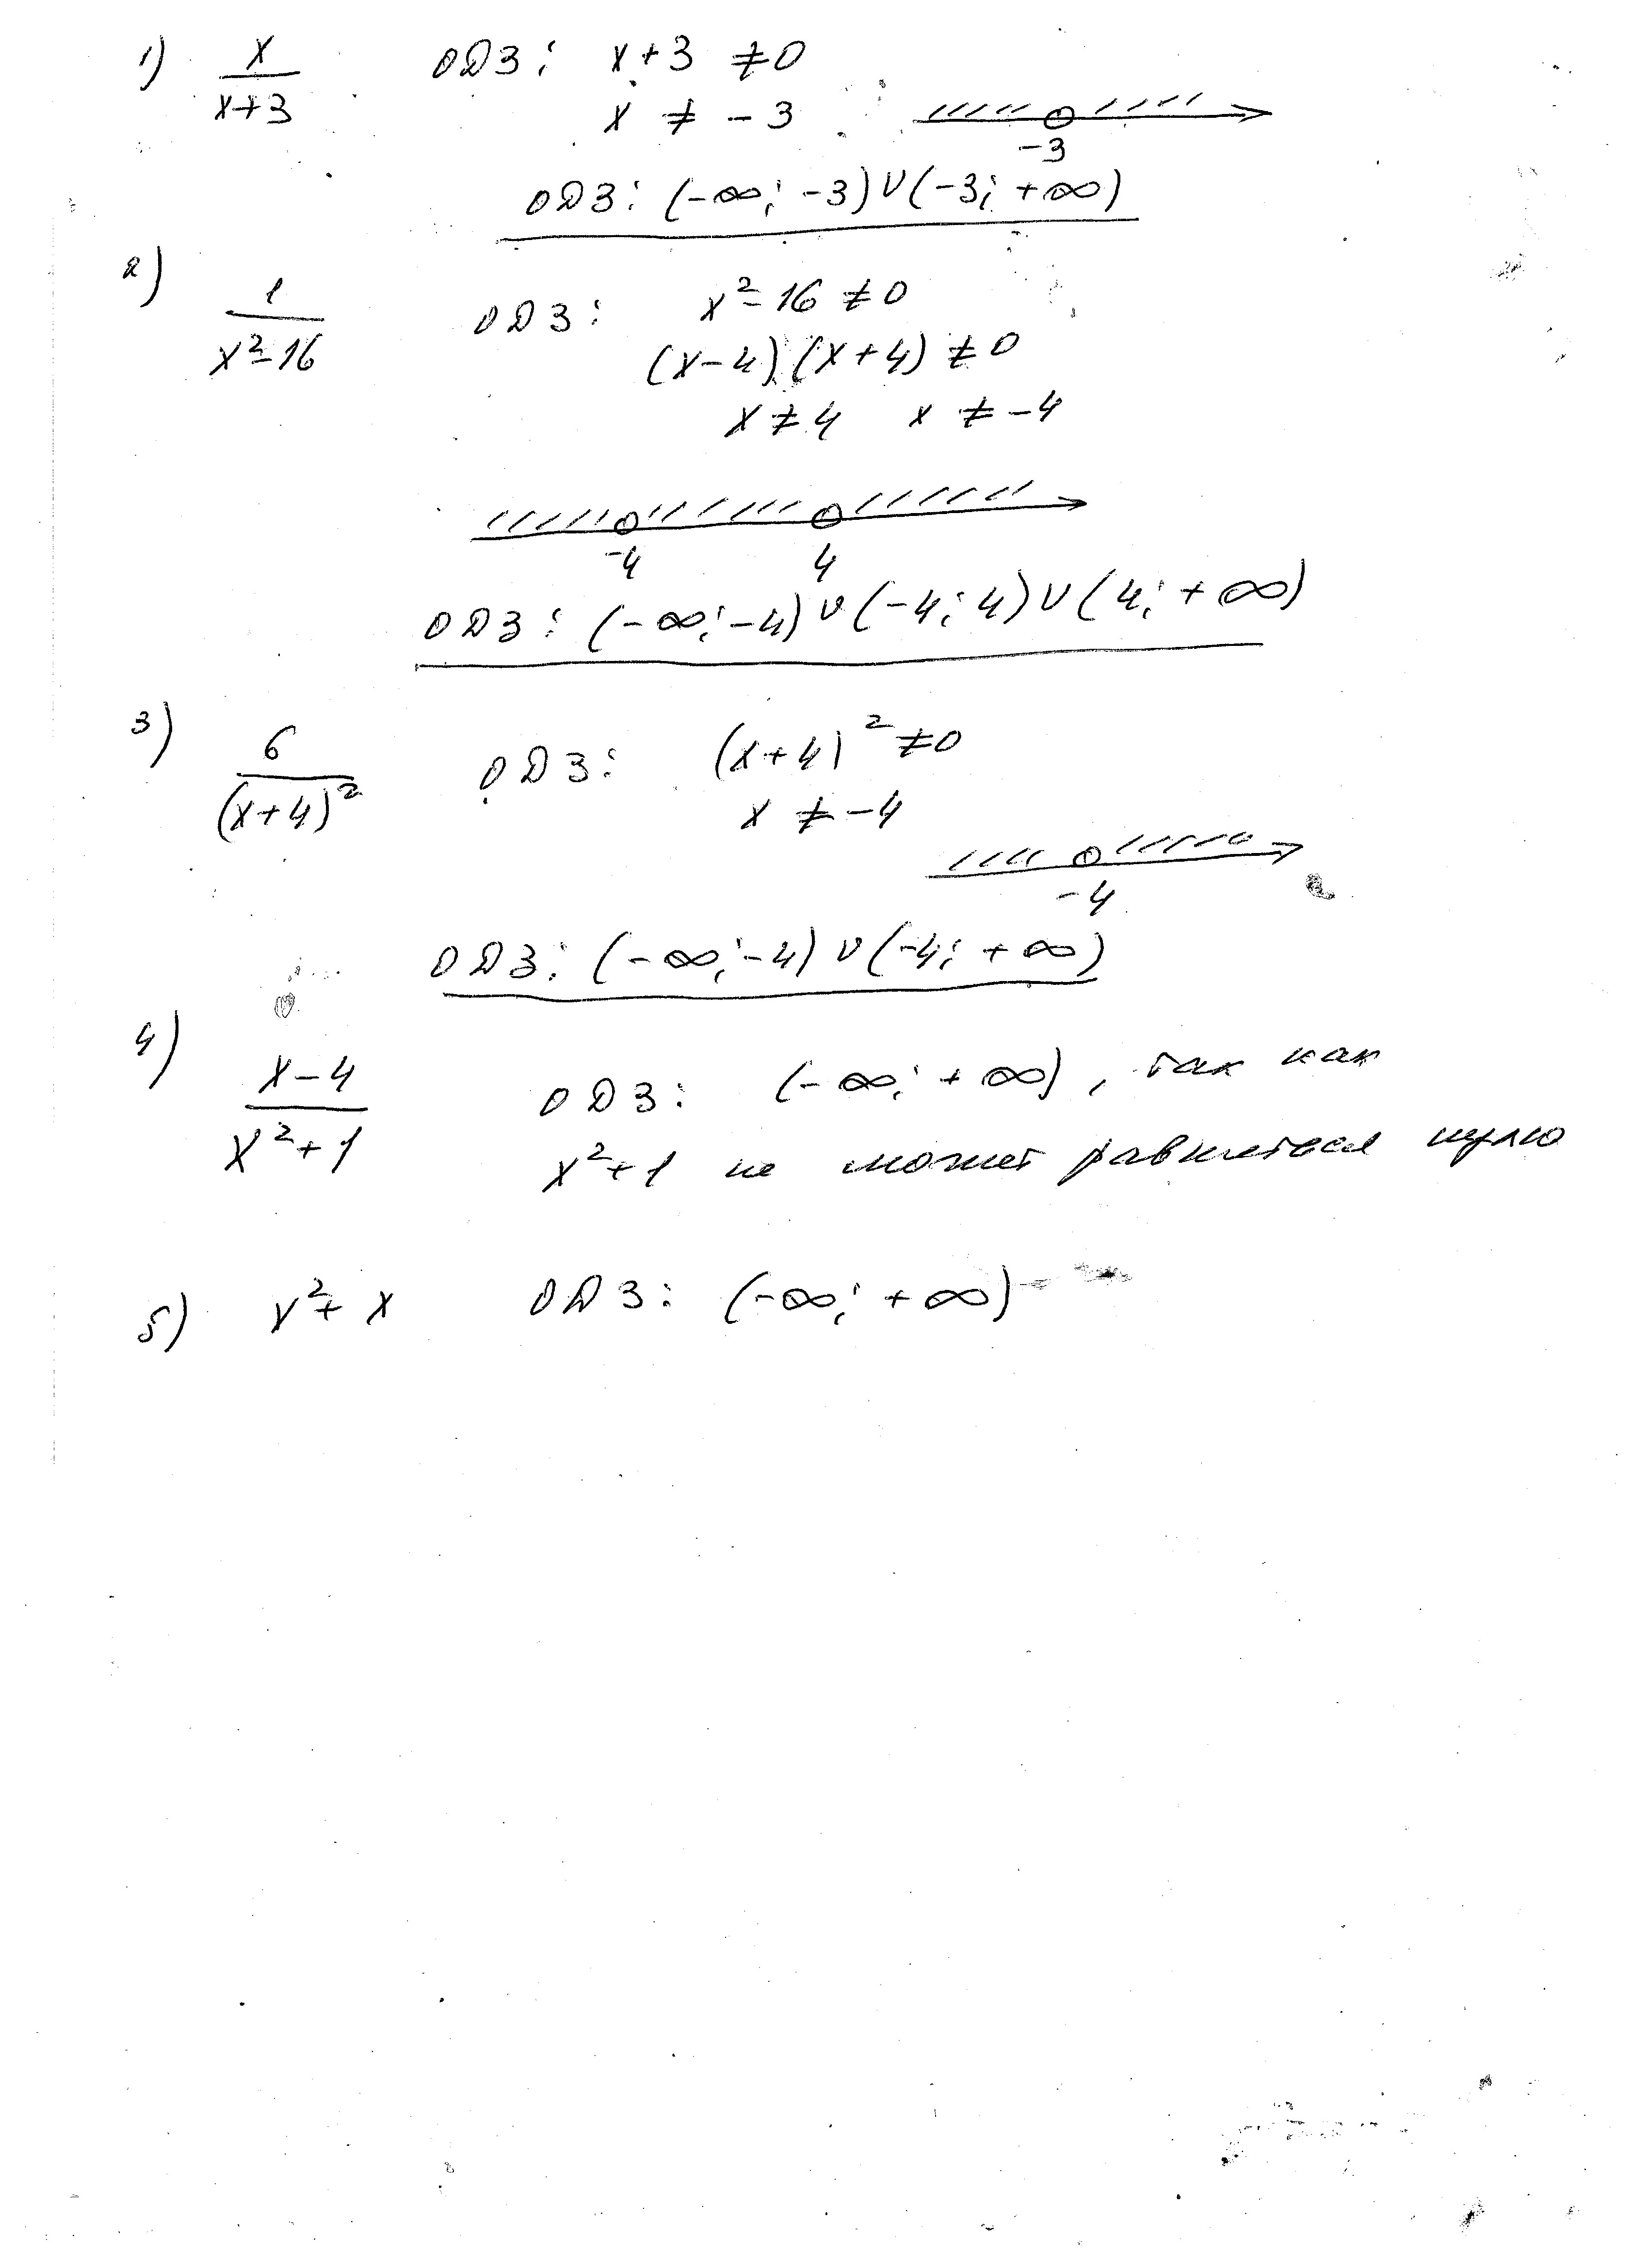 1) x/(x+3) ОДЗ: x+3 ≠0
x ≠ -3
-3
ОДЗ: (-∞; -3)∪(-3; +∞)
2) 1/(x²-16) ОДЗ: x²-16 ≠0
(x-4)(x+4) ≠0
x ≠4 x ≠ -4
-4 4
ОДЗ: (-∞; -4)∪(-4; 4)∪(4; +∞)
3) 6/(x+4)² ОДЗ: (x+4)² ≠0
x ≠ -4
-4
ОДЗ: (-∞; -4)∪(-4; +∞)
4) (x-4)/(x²+1) ОДЗ: (-∞; +∞), так как
x²+1 не может равняться нулю
5) x²+x ОДЗ: (-∞; +∞)